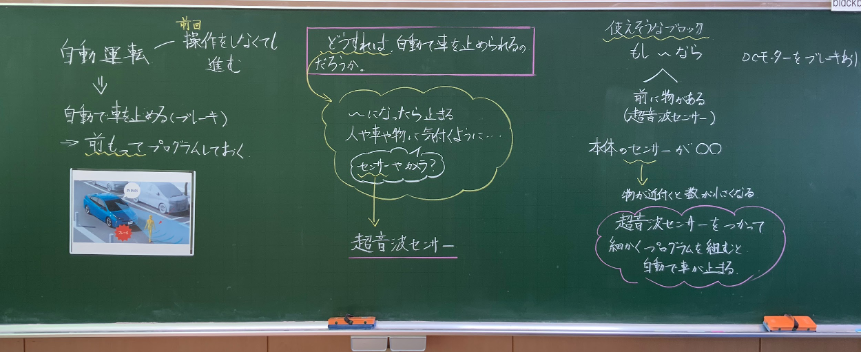 前回
自動運転 ― 操作をしなくても
進む
↓
自動で車を止める(ブレーキ)
→ 前もってプログラムしておく。
どうすれば、自動で車を止められるの
だろうか。
～になったら止まる
人や車や物に気付くように…
センサーやカメラ?
↓
超音波センサー
使えそうなブロック
もし～なら
前に物がある
(超音波センサー)
本体のセンサーが〇〇
↓
物が近付くと数が小さくなる
超音波センサーをつかって
細かくプログラムを組むと
自動で車が止まる。
DCモーターをブレーキあり
blackb